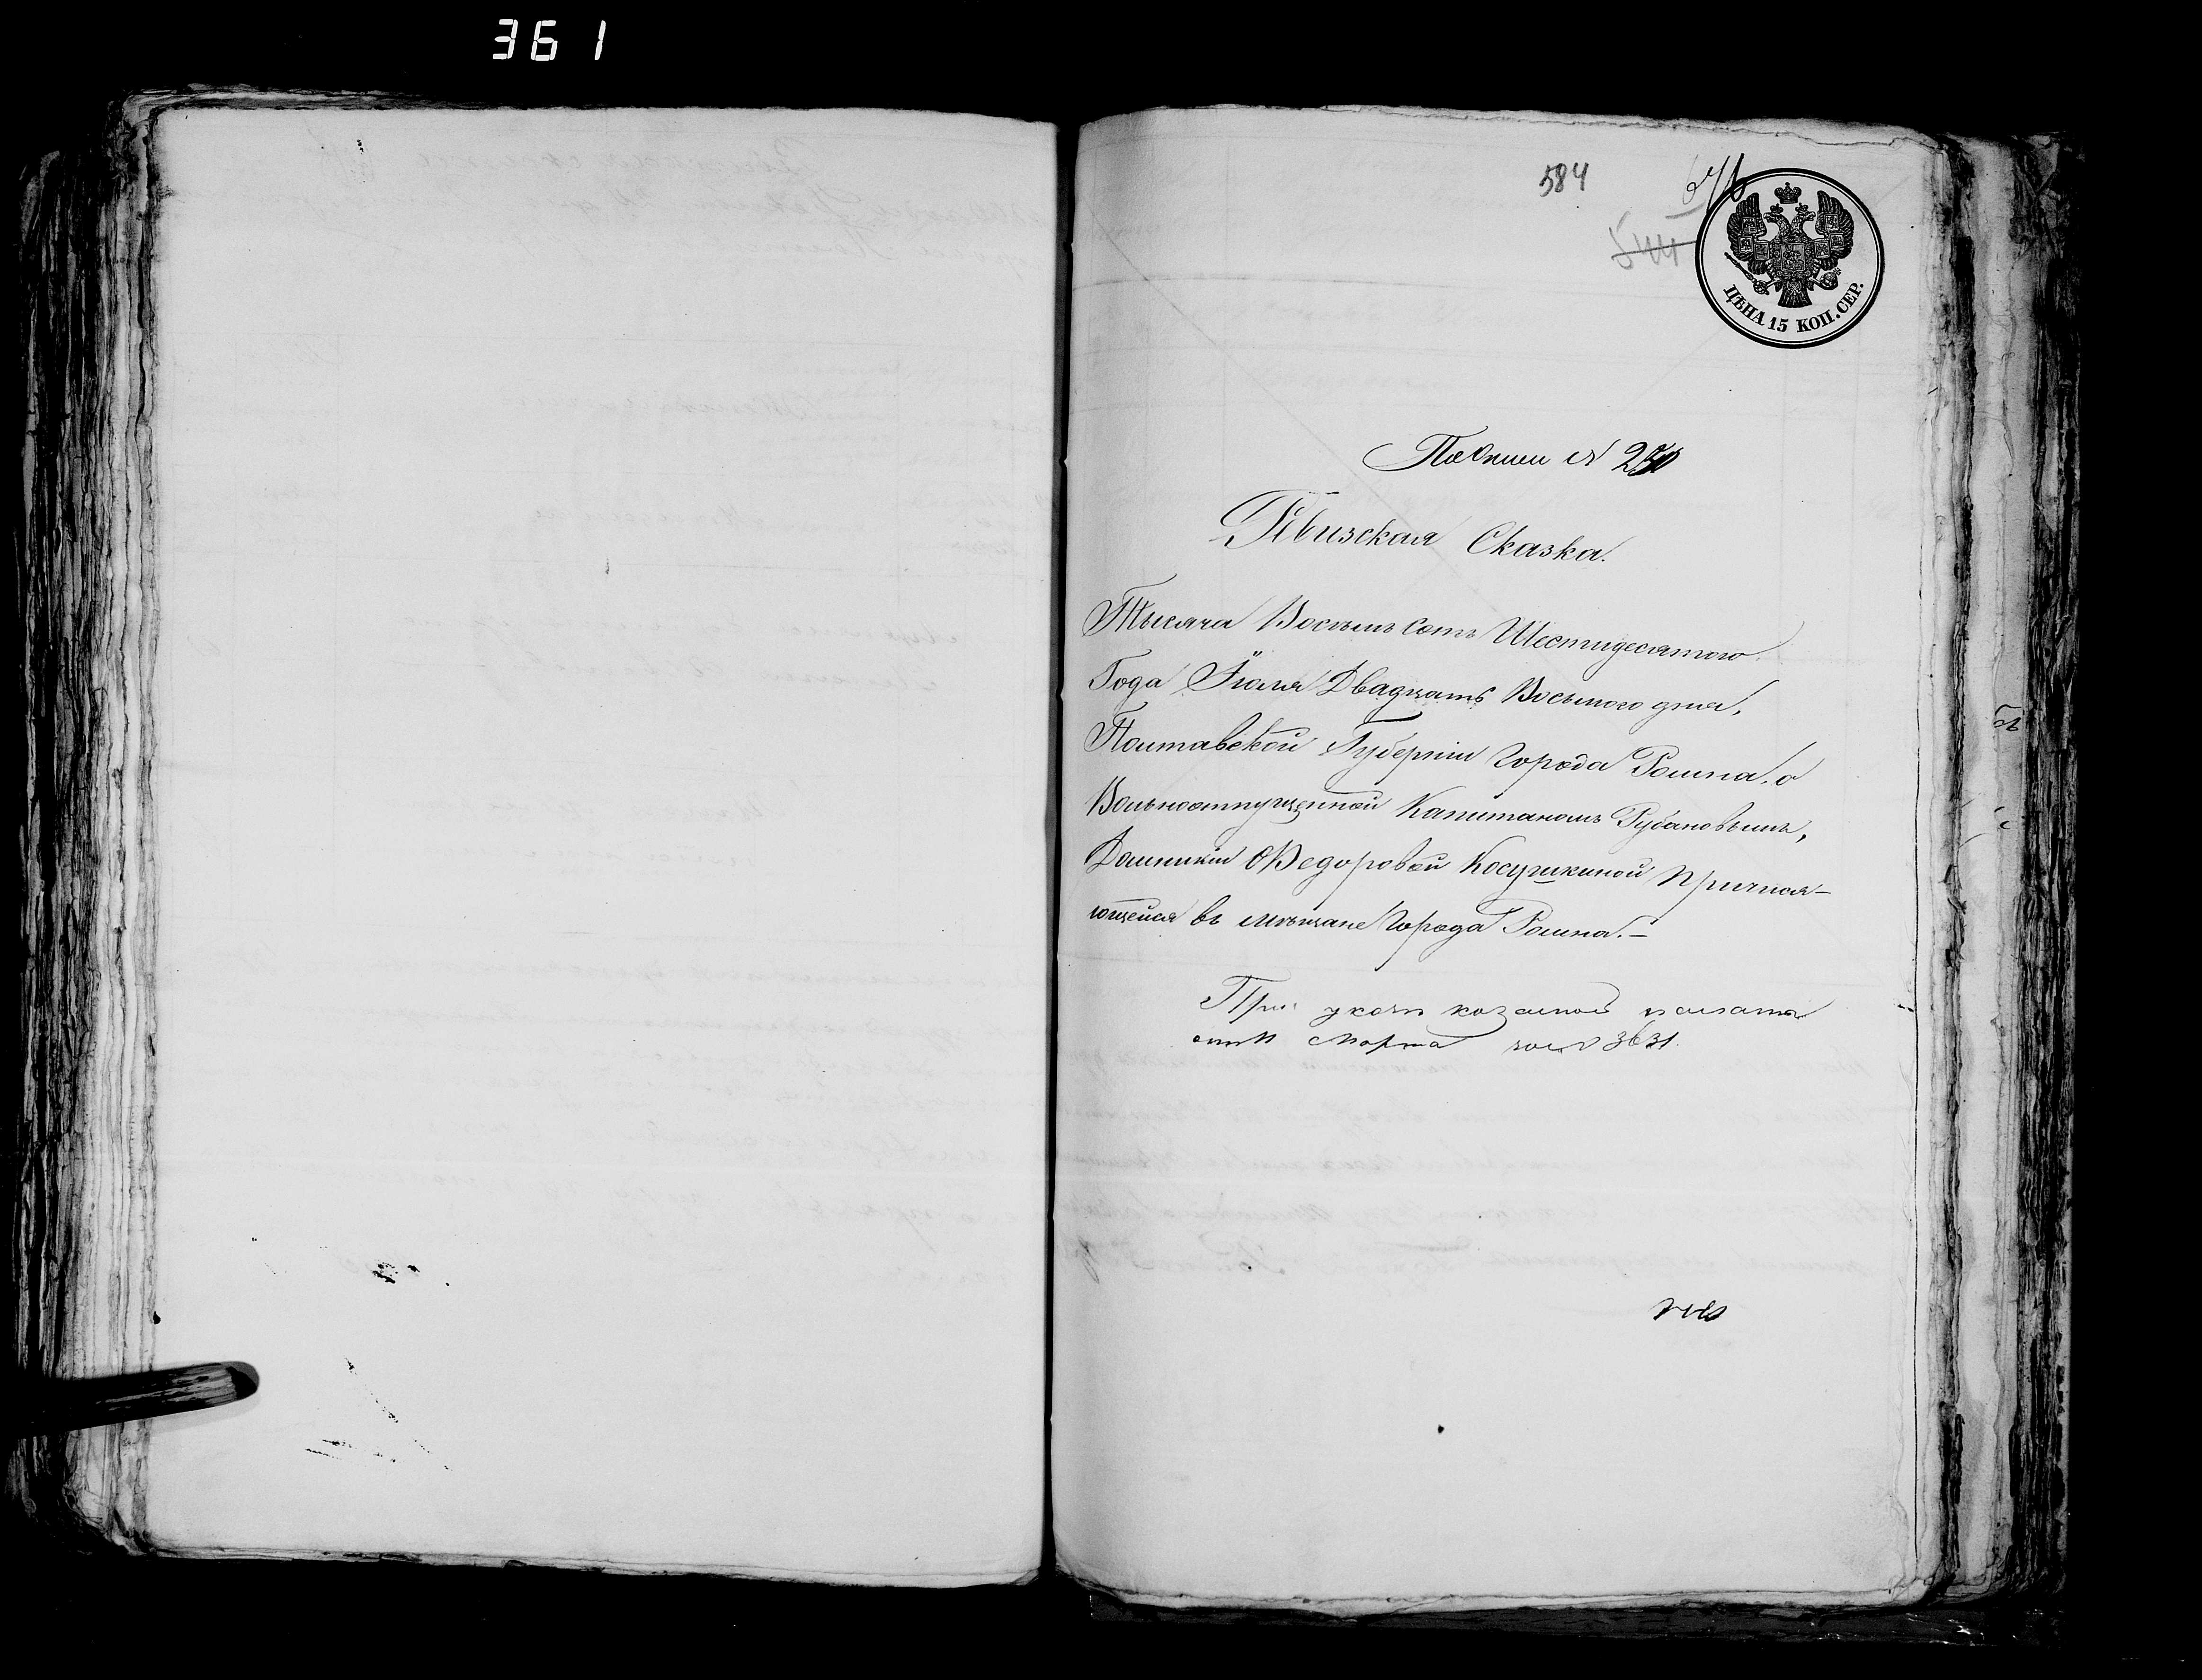 361
584
646
544
ЦѢНА 15 КОП. СЕР.
По описи № 2
Ревизская Сказка.
Тысяча Восемь Сотъ Шестидесятого
Года Іюля Двадцать Восьмого дня,
Полтавской Губерніи Города Ромна, о
Вольноотпущенной Капитаномъ Рубановымъ,
Домникіи Ѳедоровой Косушкиной причисля-
ющейся въ мѣщане Города Ромна.—
При указѣ казенной палаты
отъ 11 Марта за № 3631.